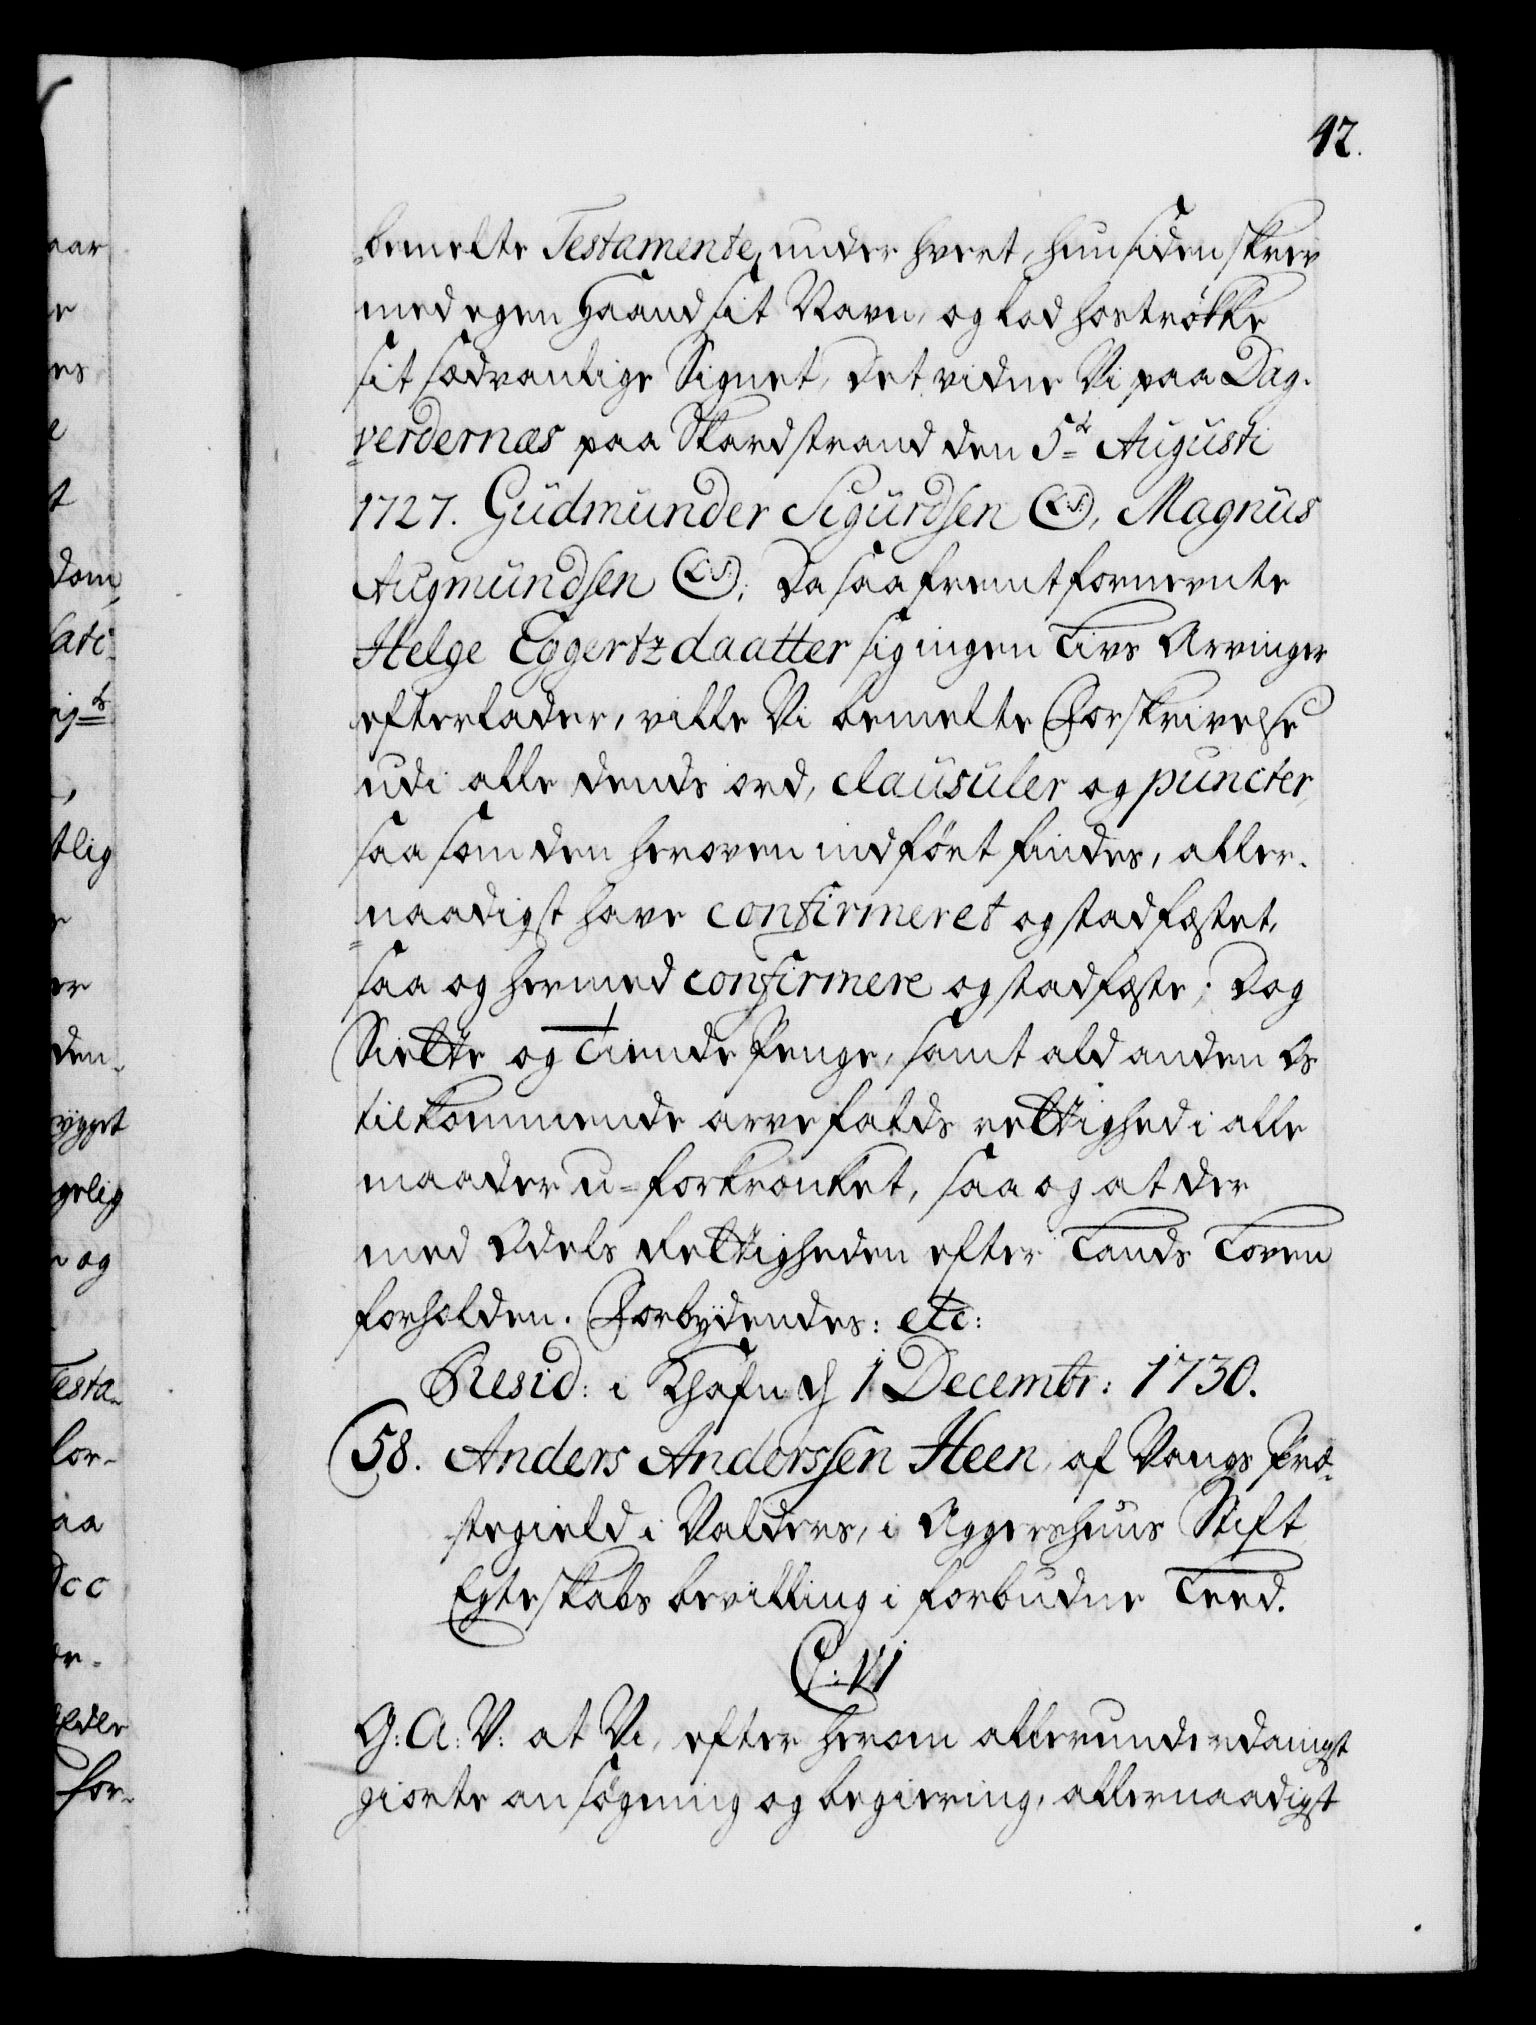 42.
bemelte Testamente, under hvert, hun siden skrev
med egen Haand sit Navn, og lod hostrøkke
sit sædvanlige Signet, det vidne Vi paa Dag-
verdernæs paa Skardstrand den 5te Augusti
1727. Gudmunder Sigurdsen (L.S.), Magnus
Augmundsen (L.S.); Da saafremt fornevnte
Helge Eggertzdaatter sig ingen Livs Arvinger
efterlader, ville Vi bemelte Forskrivelse
udi alle dends ord, clausuler og puncter,
saa som den heroven indført findes, aller-
naadigst have confirmeret og stadfæstet,
saa og hermed confirmere og stadfæste; Dog
Siette og Tiende Penge, samt ald anden Os
tilkommende arvefalds rettighed i alle
maader u-forkrænket, saa og at der
med Odels Rettigheden efter Lands Loven
forholden. Forbydendes: etc:
Resid: i Khafn d 1 Decembr: 1730.
58. Anders Anderssen Heen, af Vangs Præ-
stegield i Valders, i Aggershuus Stift
Egteskabs bevilling i forbudne Leed.
C: VI
G: A: V: at Vi, efter herom allerunderdanigst
giorte ansøgning og begiering, allernaadigst
aar
e
es
e
t
dom
lati-
tlig
r
er
den-
ygget
gelig
og
Testa-
lor-
aa
cc
or-
for-